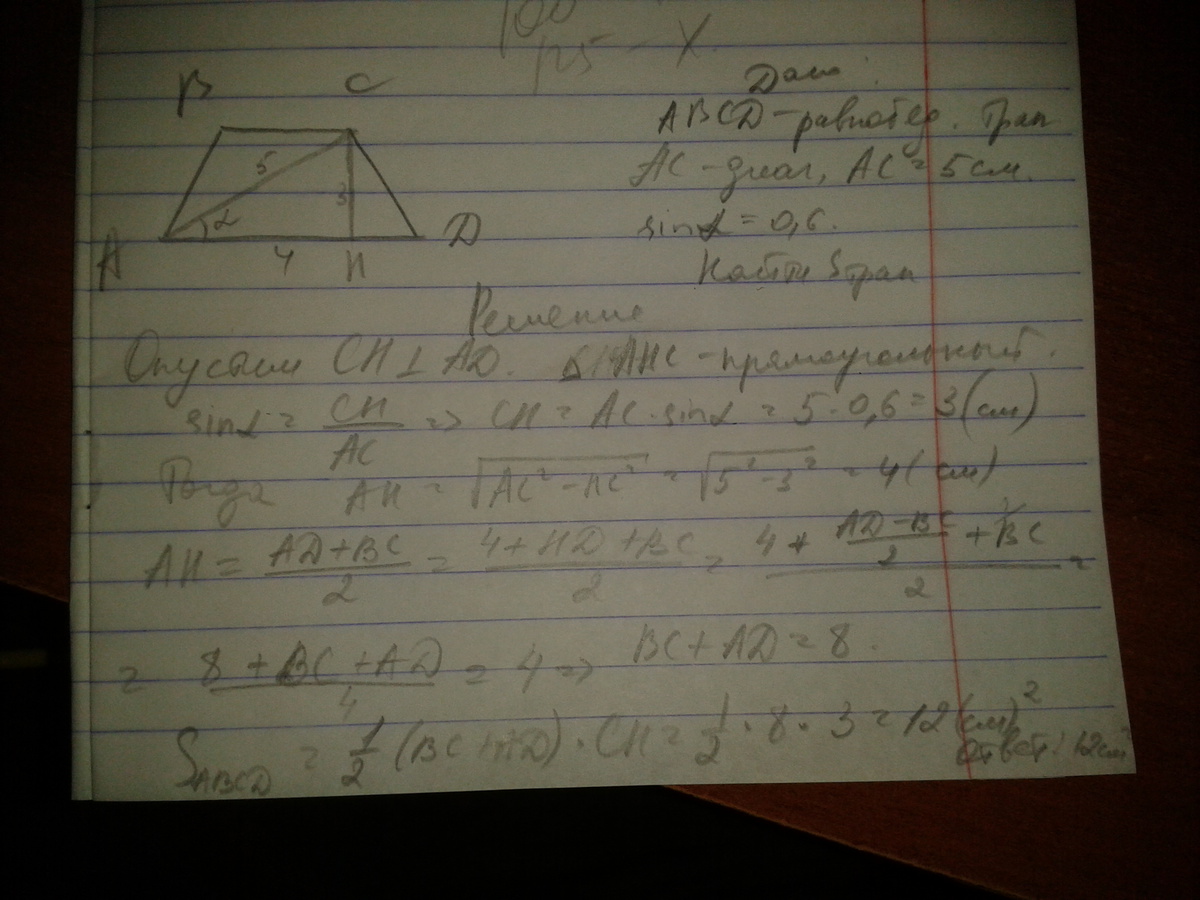 100
125 – X
B C
Дано:
ABCD – равнобед. трап
5
AC – диаг, AC = 5 см.
3
α
sinα = 0,6.
A 4 H D
Найти Sтрап
Решение
Опустим CH ⊥ AD. Δ AHC – прямоугольный.
sinα = CH/AC => CH = AC · sinα = 5 · 0,6 = 3 (см)
Тогда AH = √(AC² – HC²) = √(5² – 3²) = 4 (см)
AH = (AD + BC)/2 = (4 + HD + BC)/2 = (4 + (AD – BC)/2 + BC)/2 =
= (8 + BC + AD)/4 = 4 => BC + AD = 8.
S_ABCD = 1/2 (BC + AD) · CH = 1/2 · 8 · 3 = 12 (см)²
Ответ: 12 см²